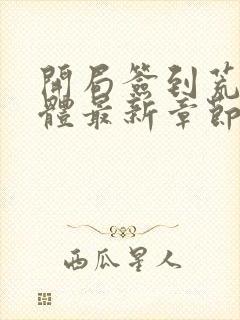 開局簽到荒
體最新章節
西瓜星人